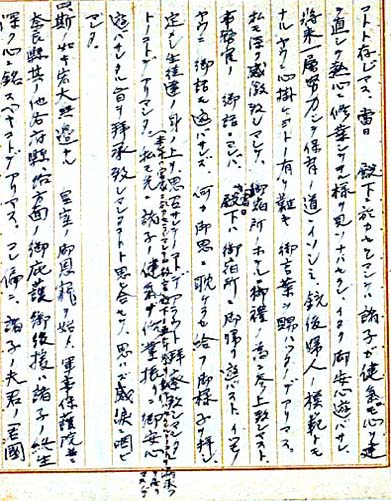 コトト存ジマス、当日 殿下ニ於カセラレマシテハ諸子ガ健気ナ心ヲ以
テ直シク熱心ニ修業シテヰル様ヲ見ソナハセラレ、イタク御安心遊バサレ、
将来一層努力シテ保育ノ道ニイソシミ銃後婦人ノ模範トモ
ナルヤウニ心掛ケヨトノ有難キ御言葉ヲ賜ハツタノデアリマス。
私モ深ク感激致シマシテ、御宿所ノホテルニ御禮ノ為ニ参上致シマスト、
事務官ノ御話ニヨレバ 殿下ハ御宿所ニ御帰リ遊バストイツモノ
ヤウニ御話モ遊バサズ、何カ御思ニ耽ケラセ給フ御様子ヲ拝シ
定メシ生徒達ノ身ノ上ヲ思召サレテノコトデアラウト拝察致シマシタ
トノコトデアリマシタ、私モ先ニ諸子ノ健気ナ修業振ニ御安心
遊バサレタル旨ヲ拝承致シマシタコトト思ヒ合セテ、思ハズ感涙ニ咽ビ
マシタ。
斯ノ如キ宏大無辺ナル 皇室ノ御恩寵ヲ始メ、軍事保護院並ニ
奈良県其ノ他各府県各方面ノ御庇護御後援ハ諸子ノ終生
深ク心ニ銘スベキコトデアリマス。コレ偏ニ諸子ノ夫君ノ君国